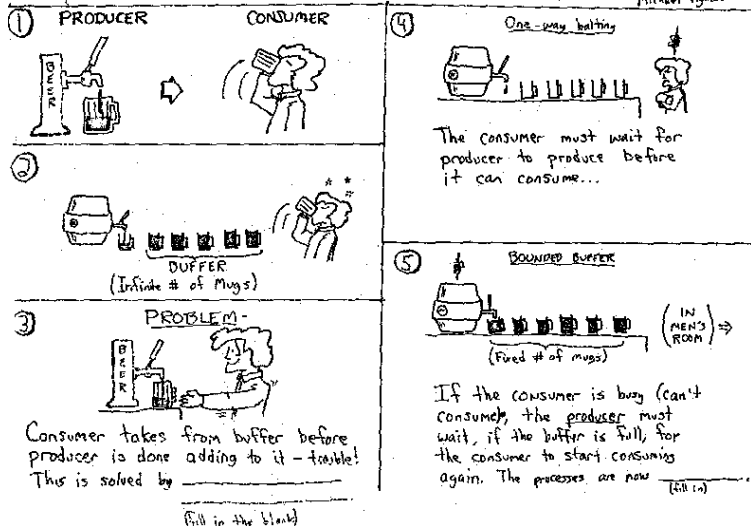 ① PRODUCER CONSUMER
BEER
②
BUFFER
(Infinite # of Mugs)
③ PROBLEM-
BEER
Consumer takes from buffer before
producer is done adding to it - trouble!
This is solved by
(fill in the blank)
Michael
④ One-way halting
The consumer must wait for
producer to produce before
it can consume...
⑤ BOUNDED BUFFER
(IN
MEN'S
ROOM) ⇒
(Fixed # of mugs)
If the consumer is busy (can't
consume), the producer must
wait, if the buffer is full, for
the consumer to start consuming
again. The processes are now
(fill in)